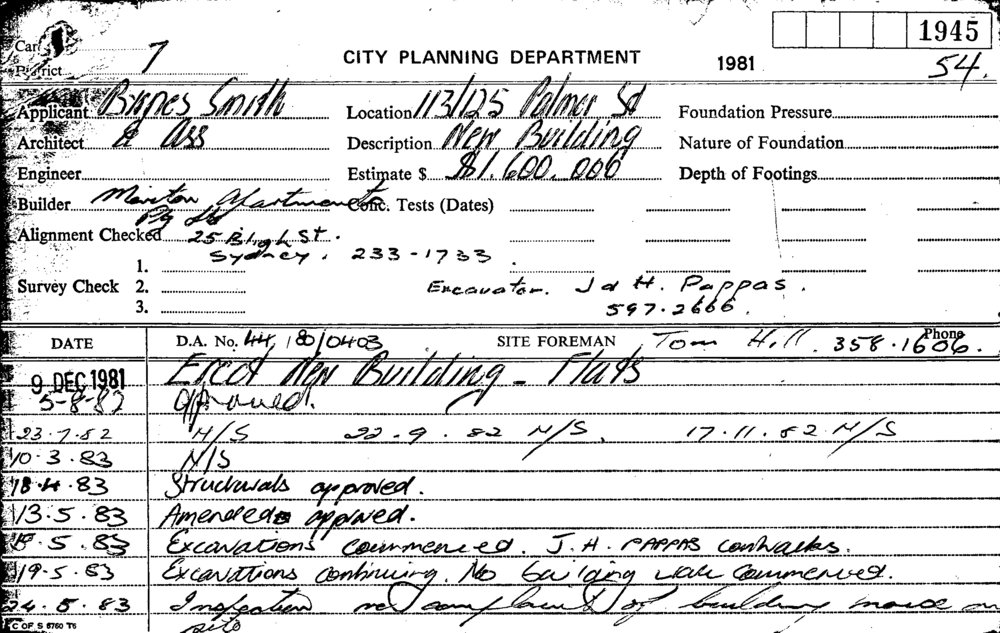 1945
Card
CITY PLANNING DEPARTMENT 1981 54.
District 7
Applicant Byrnes Smith Location 113/125 Palmer St Foundation Pressure
Architect & Ass Description New Building Nature of Foundation
Engineer Estimate $ $1,600,000 Depth of Footings
Builder Marton Apartments Conc. Tests (Dates)
Pty Ltd
Alignment Checked 25 Bligh St.
Sydney. 233-1733
1.
Survey Check 2. Excavator. J & H. Pappas.
3. 597.2666
DATE D.A. No. 44, 180/0403 SITE FOREMAN Tom Hill. Phone 358.1606.
9 DEC 1981 Erect New Building - Flats
5-8-82 Approved.
23.7.82 N/S 22.9.82 N/S. 17.11.82 N/S
10.3.83 N/S
18.4.83 Structurals approved.
13.5.83 Amended approved.
.5.83 Excavations commenced. J.H. PAPPAS
19-5.83 Excavations continuing. No building work commenced.
24.5.83 Inspection re complaint of building noise on
site
C OF S 6760 T6